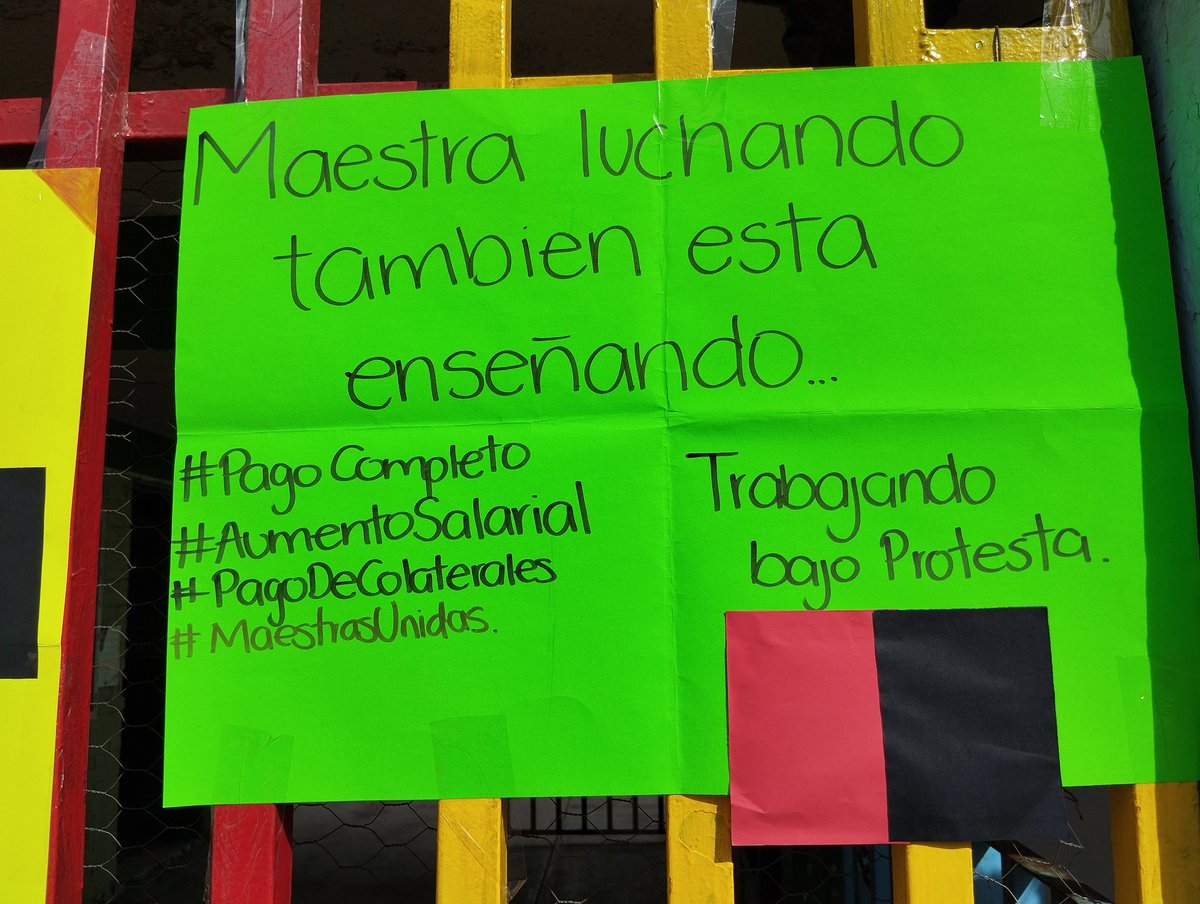 Maestra luchando
tambien esta
enseñando...
#Pago Completo
#AumentoSalarial
#PagoDeColaterales
#MaestrasUnidas.
Trabajando
bajo Protesta.